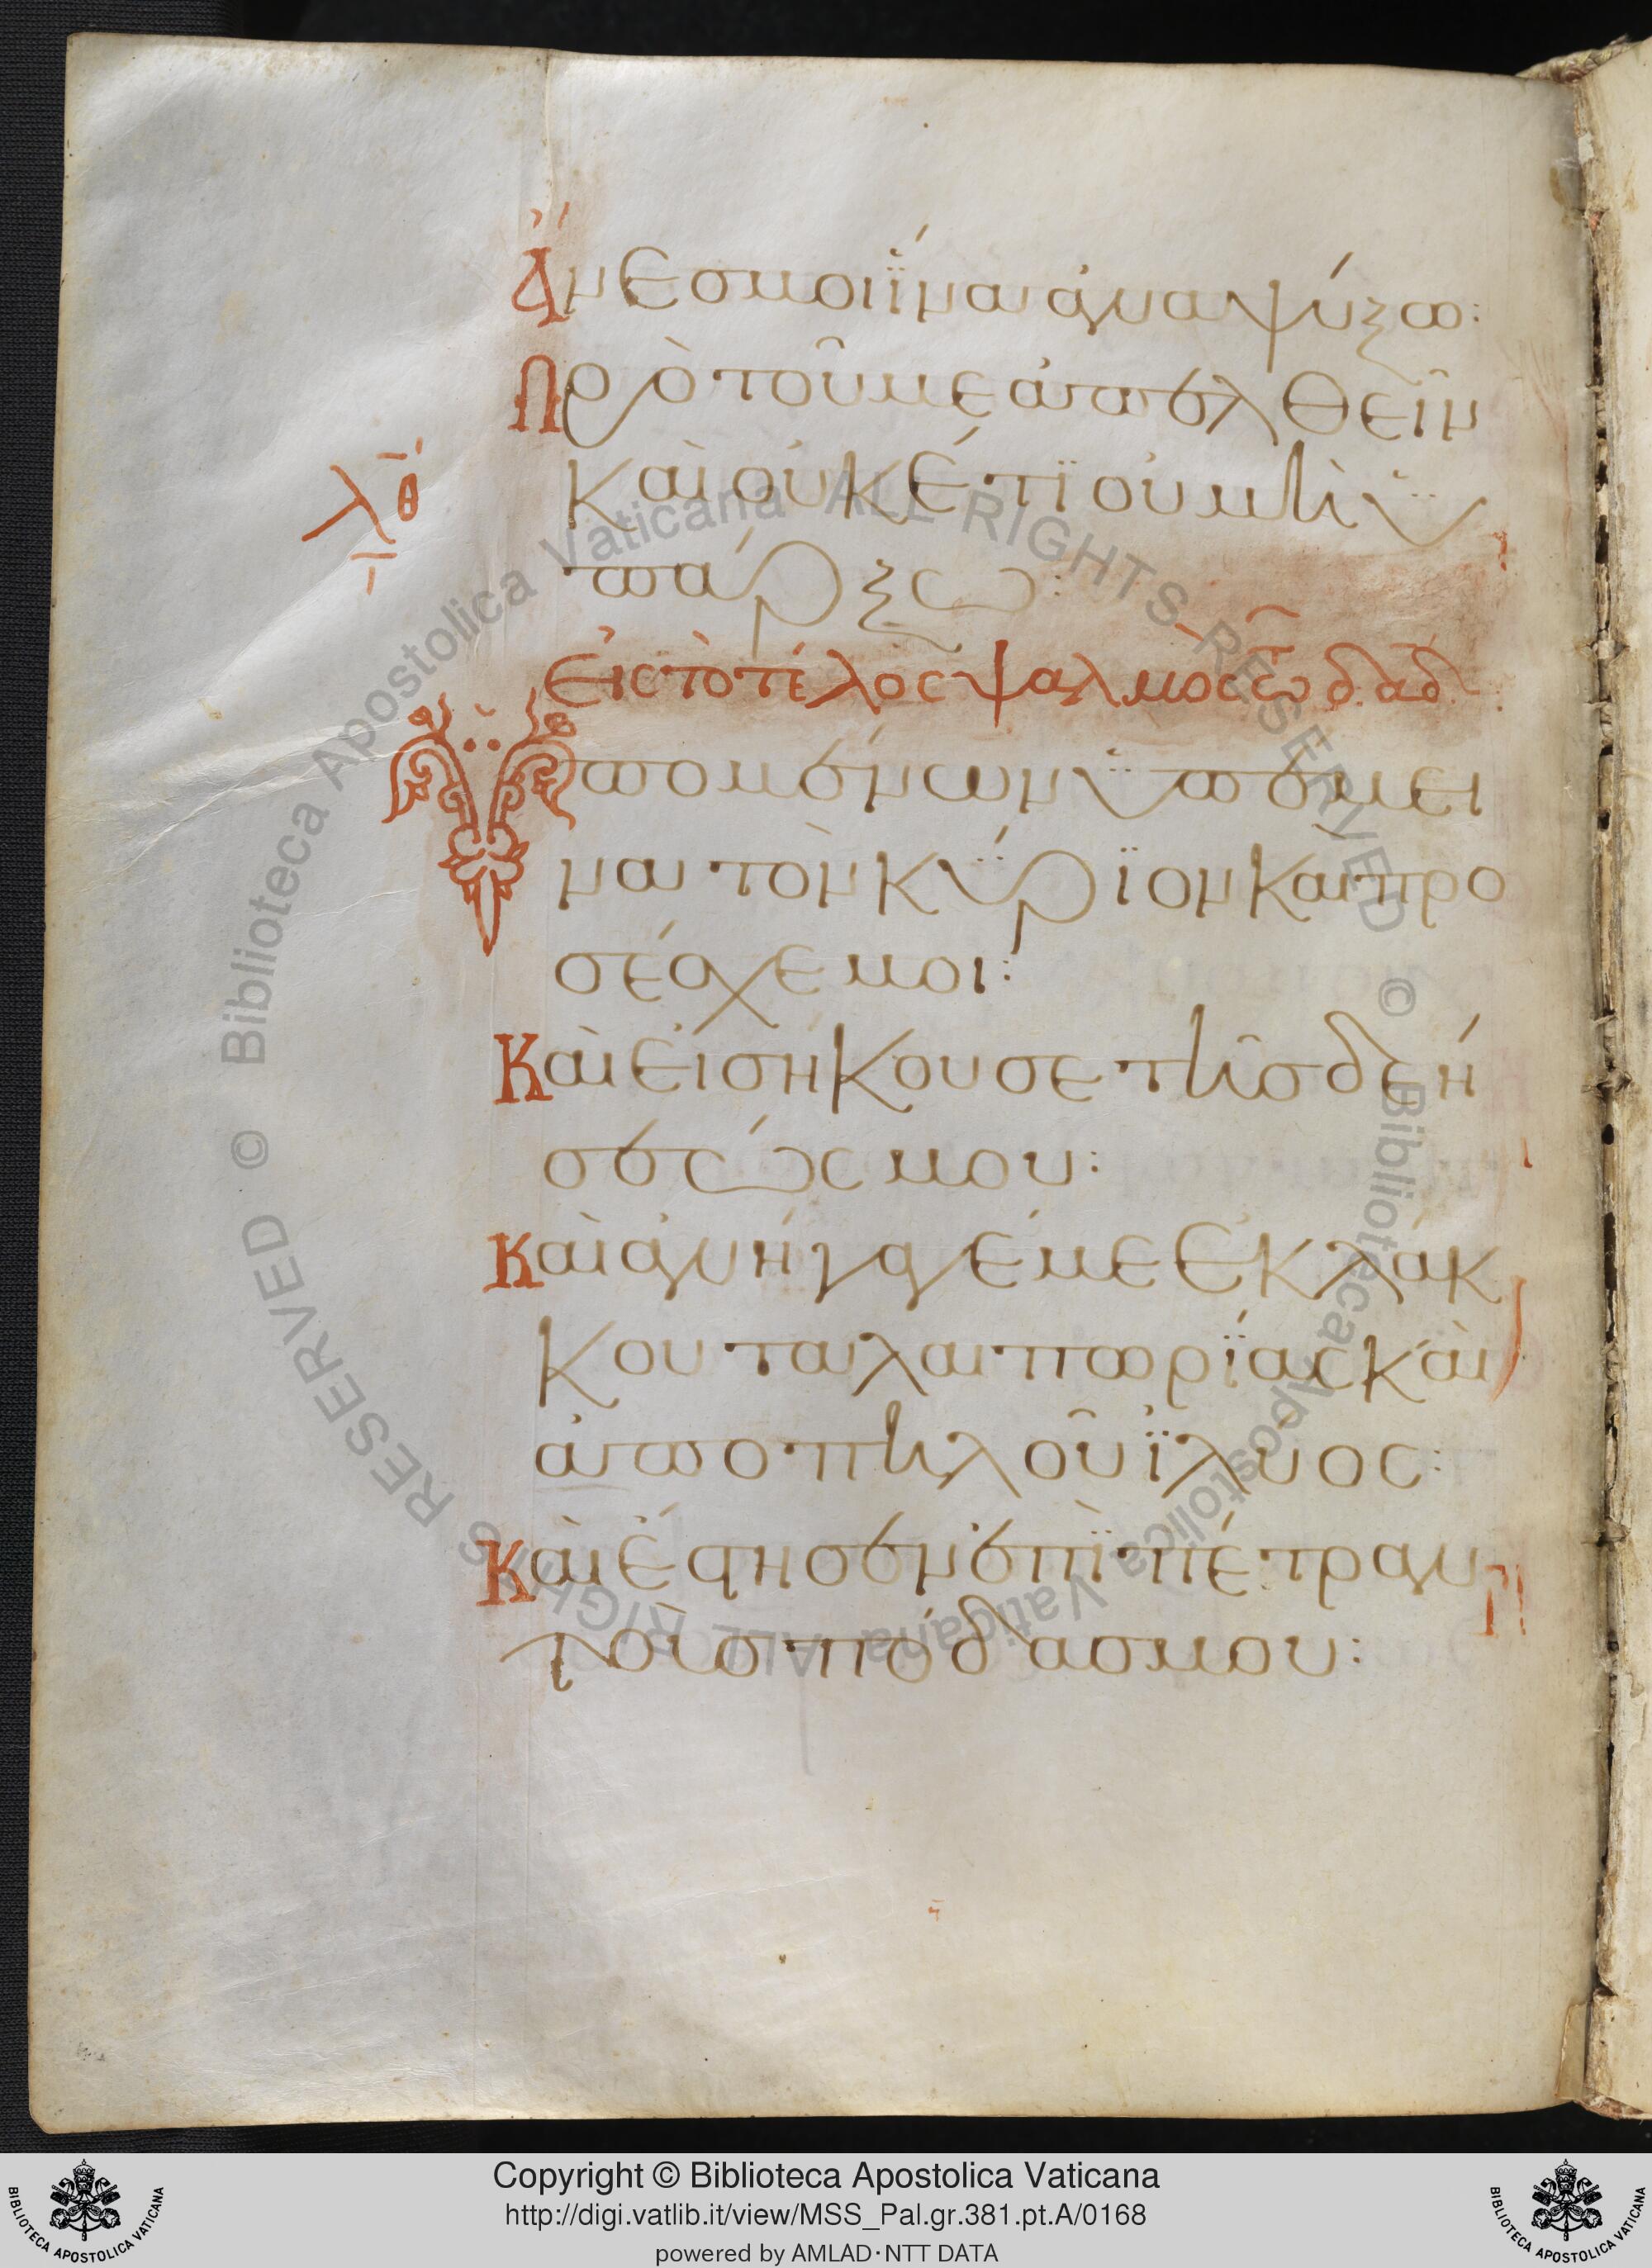 Ἄνεσ μοι ἵνα ἀναψύξω:
Πρὸ τοῦ με ἀπελθεῖν
καὶ οὐκέτϊ οὐ μὴ ὑ
πάρξω:
λθ
Εἰς τὸ τέλος ψαλμος τῶ δαδ
Ὑπομένων ὑπέμει
να τὸν κύρϊον καὶ προ
σέσχε μοι:
Καὶ εἰσήκουσε τῆσ δεή
σεώς μου:
Καὶ ἀνήγαγέ με ἐκ λάκ
κου ταλαιπωρΐας καὶ
ἀπο πηλοῦ ϊλύος:
Καὶ ἔστησεν ἐπὶ πέτραν
τοὺσ πόδασ μου:
© Biblioteca Apostolica Vaticana ALL RIGHTS RESERVED © Biblioteca Apostolica Vaticana ALL RIGHTS RESERVED
BIBLIOTECA APOSTOLICA VATICANA
Copyright © Biblioteca Apostolica Vaticana
http://digi.vatlib.it/view/MSS_Pal.gr.381.pt.A/0168
powered by AMLAD·NTT DATA
BIBLIOTECA APOSTOLICA VATICANA